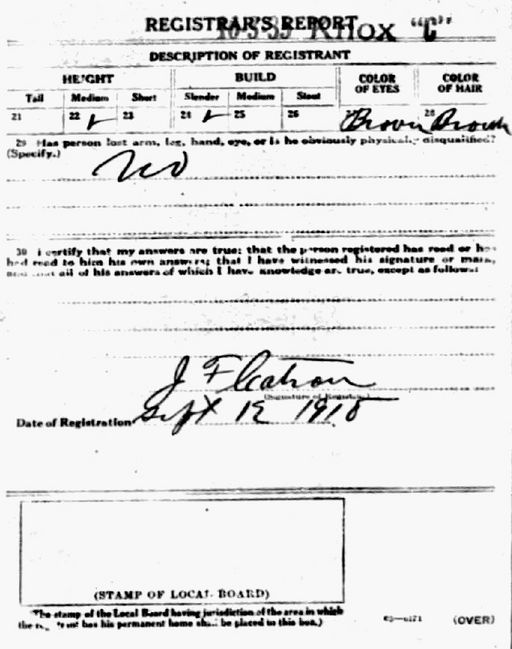 REGISTRAR'S REPORT
10-3-35 Knox "C"
DESCRIPTION OF REGISTRANT
HEIGHT BUILD COLOR OF EYES COLOR OF HAIR
Tall Medium Short Slender Medium Stout
21 22 ✓ 23 24 ✓ 25 26 27 Brown 28 Brown
29 Has person lost arm, leg, hand, eye, or is he obviously physically disqualified?
(Specify.)
No
30 I certify that my answers are true; that the person registered has read or has
had read to him his own answers; that I have witnessed his signature or mark,
and that all of his answers of which I have knowledge are true, except as follows:
J F Catron
(Signature of Registrar)
Date of Registration Sept 12 1918
(STAMP OF LOCAL BOARD)
The stamp of the Local Board having jurisdiction of the area in which
the registrant has his permanent home shall be placed in this box.)
(OVER)